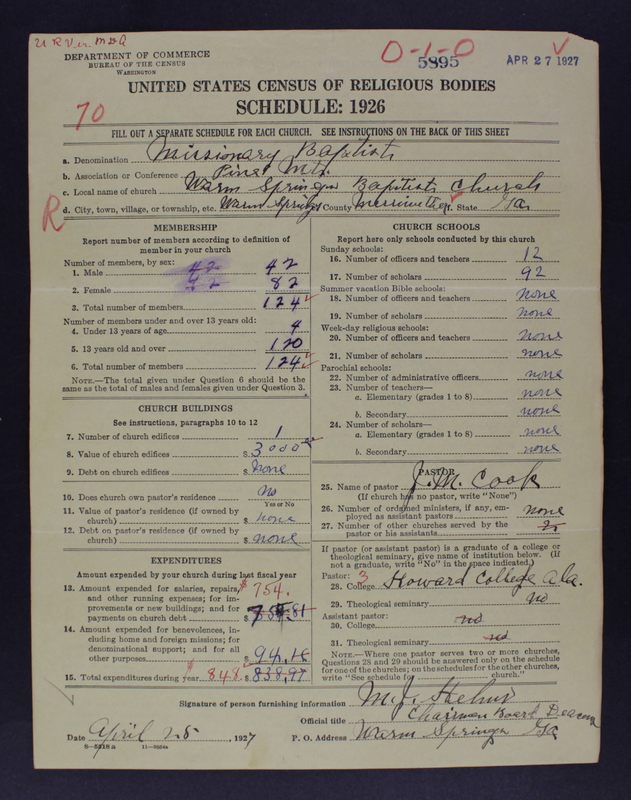 DEPARTMENT OF COMMERCE
BUREAU OF THE CENSUS
WASHINGTON
0-1-0
5895
APR 27 1927
UNITED STATES CENSUS OF RELIGIOUS BODIES
SCHEDULE: 1926
70
FILL OUT A SEPARATE SCHEDULE FOR EACH CHURCH. SEE INSTRUCTIONS ON THE BACK OF THIS SHEET
a. Denomination Missionary Baptist
b. Association or Conference Pine Mt.
c. Local name of church Warm Springs Baptist Church
R
d. City, town, village, or township, etc. Warm Springs County Meriwether State Ga.
MEMBERSHIP
Report number of members according to definition of
member in your church
Number of members, by sex:
1. Male 42 42
2. Female 42 82
3. Total number of members 124
Number of members under and over 13 years old:
4. Under 13 years of age 4
5. 13 years old and over 120
6. Total number of members 124
NOTE.—The total given under Question 6 should be the
same as the total of males and females given under Question 3.
CHURCH BUILDINGS
See instructions, paragraphs 10 to 12
7. Number of church edifices 1
8. Value of church edifices $ 3000
9. Debt on church edifices $ none
10. Does church own pastor's residence no
Yes or No
11. Value of pastor's residence (if owned by
church) $ none
12. Debt on pastor's residence (if owned by
church) $ none
EXPENDITURES
Amount expended by your church during last fiscal year
13. Amount expended for salaries, repairs, $754.
and other running expenses; for im-
provements or new buildings; and for
payments on church debt $
14. Amount expended for benevolences, in-
cluding home and foreign missions; for
denominational support; and for all
other purposes $ 94.16
15. Total expenditures during year $848. $ 838.97
CHURCH SCHOOLS
Report here only schools conducted by this church
Sunday schools:
16. Number of officers and teachers 12
17. Number of scholars 92
Summer vacation Bible schools:
18. Number of officers and teachers none
19. Number of scholars none
Week-day religious schools:
20. Number of officers and teachers none
21. Number of scholars none
Parochial schools:
22. Number of administrative officers none
23. Number of teachers—
a. Elementary (grades 1 to 8) none
b. Secondary none
24. Number of scholars—
a. Elementary (grades 1 to 8) none
b. Secondary none
PASTOR
25. Name of pastor J. M. Cook
(If church has no pastor, write "None")
26. Number of ordained ministers, if any, em-
ployed as assistant pastors none
27. Number of other churches served by the
pastor or his assistants
If pastor (or assistant pastor) is a graduate of a college or
theological seminary, give name of institution below. (If
not a graduate, write "No" in the space indicated.)
Pastor: 3
28. College Howard College Ala.
29. Theological seminary no
Assistant pastor:
30. College no
31. Theological seminary no
NOTE.—Where one pastor serves two or more churches,
Questions 28 and 29 should be answered only on the schedule
for one of the churches; on the schedules for the other churches,
write "See schedule for church."
Signature of person furnishing information M. J.
Official title Chairman Board Deacons
Date April 25, 1927 P. O. Address Warm Springs Ga